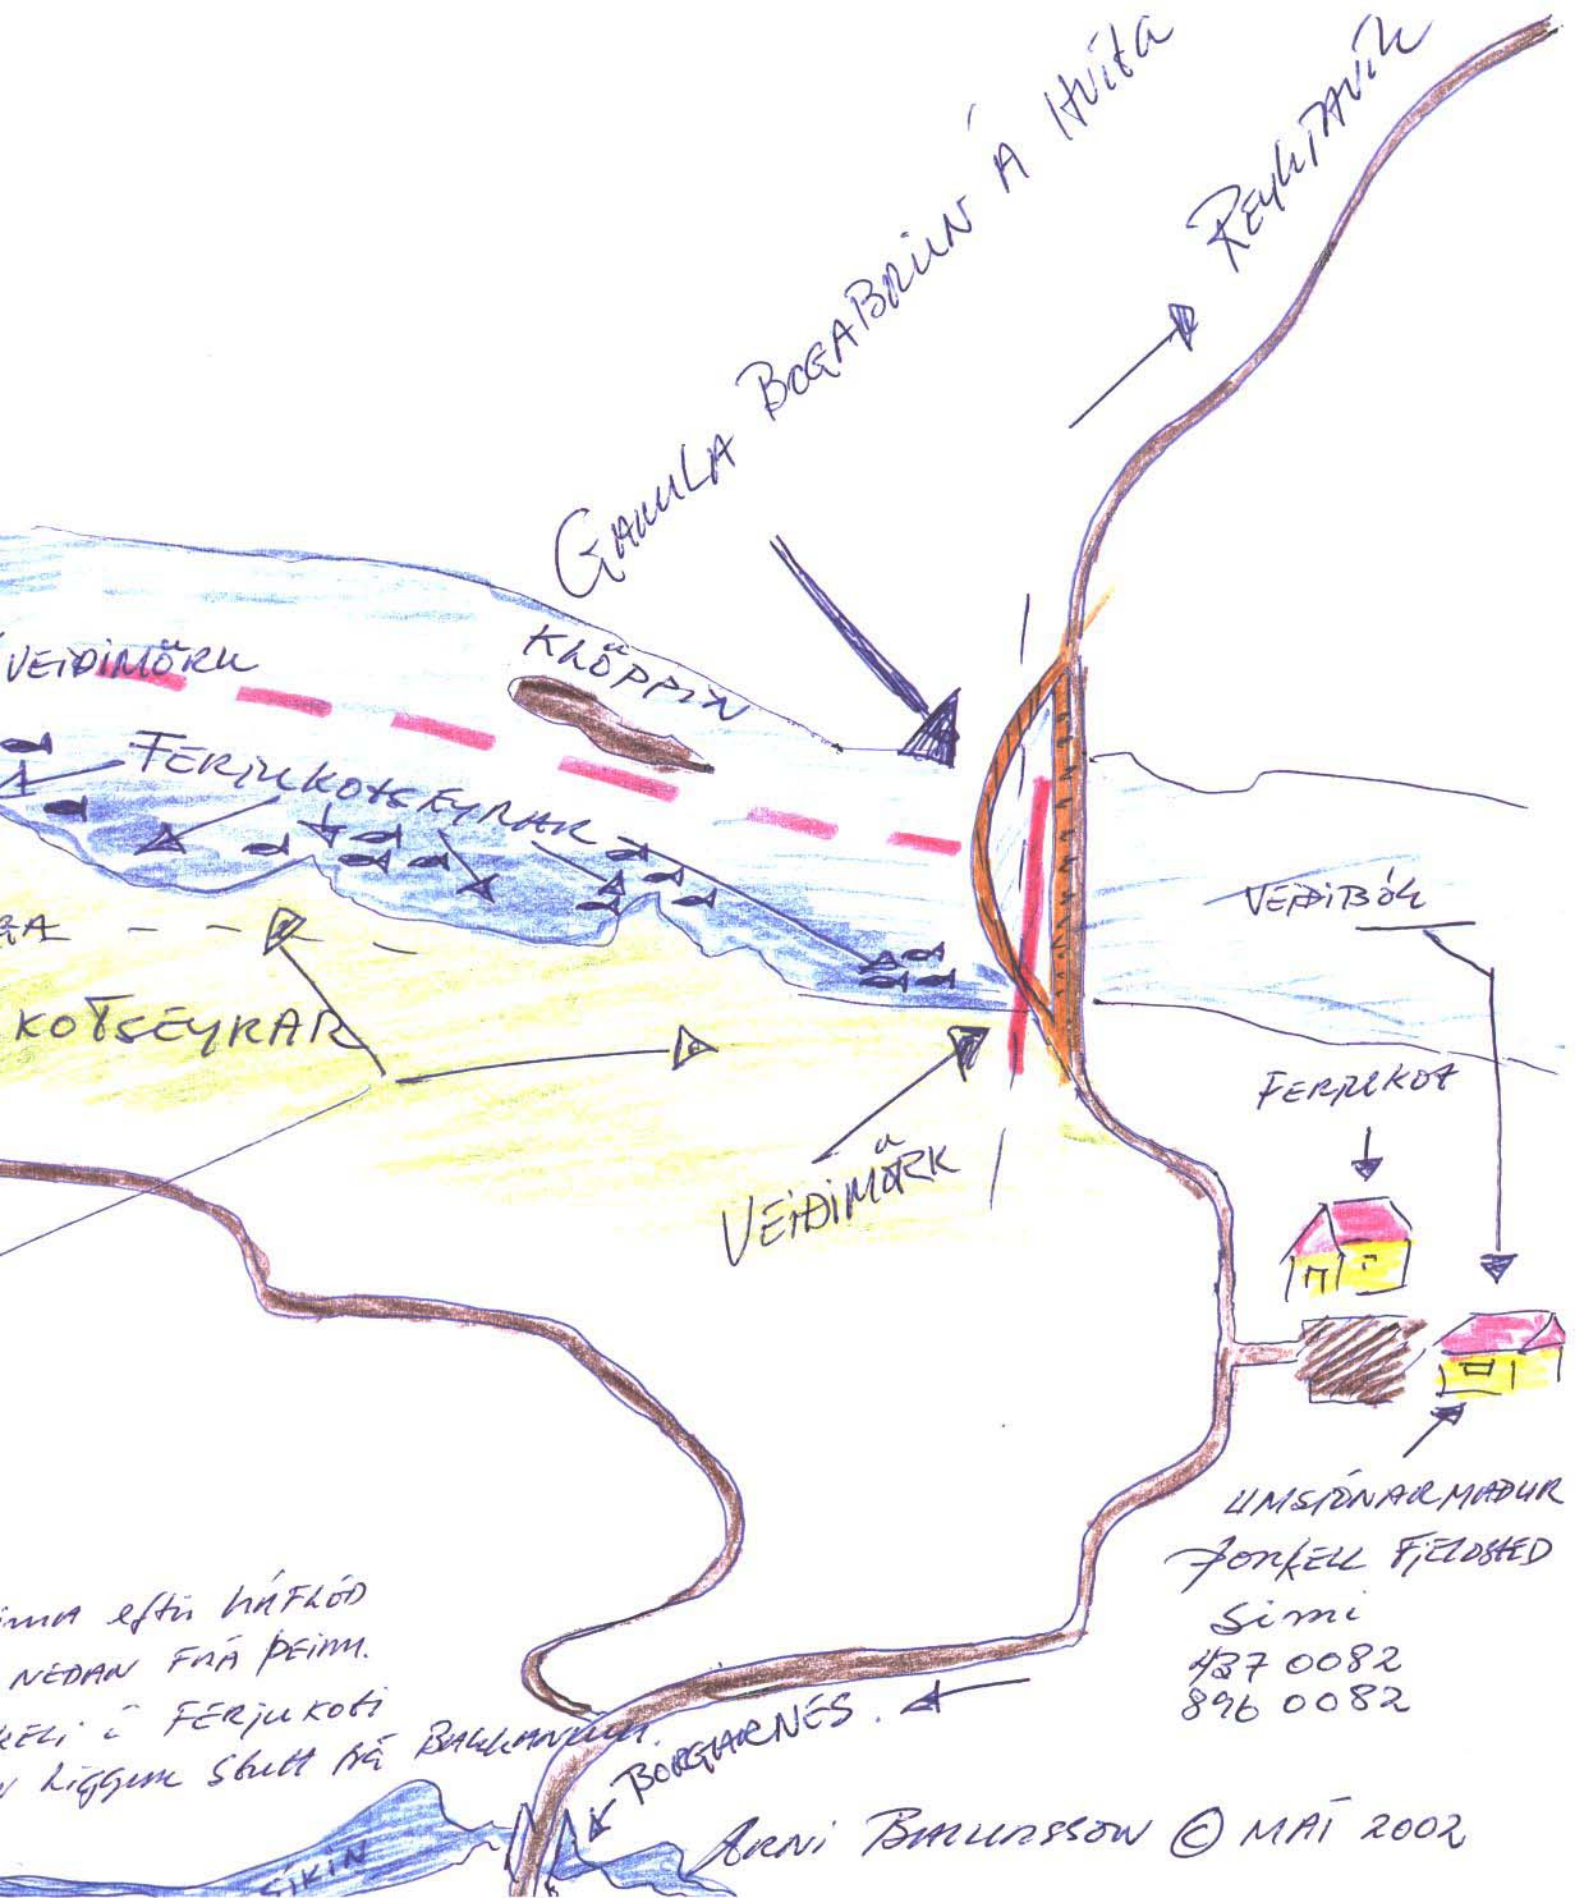 GAMLA BOGABRÚIN Á HVÍTÁ
REYKJAVÍK
VEIÐIMÖRK
KLÖPPIN
FERJUKOTSEYRAR
VEIÐIBÓK
KOTSEYRAR
FERJUKOT
VEIÐIMÖRK
UMSJÓNARMAÐUR
ÞORKELL FJELDSTED
Sími
437 0082
896 0082
eftir HÁFLÓÐ
NEÐAN FRÁ ÞEIM.
KELI í FERJUKOTI
LIGGUR Stutt frá BAKKANUM.
BORGARNES.
SÍKIN
ÁRNI BALDURSSON © MAÍ 2002